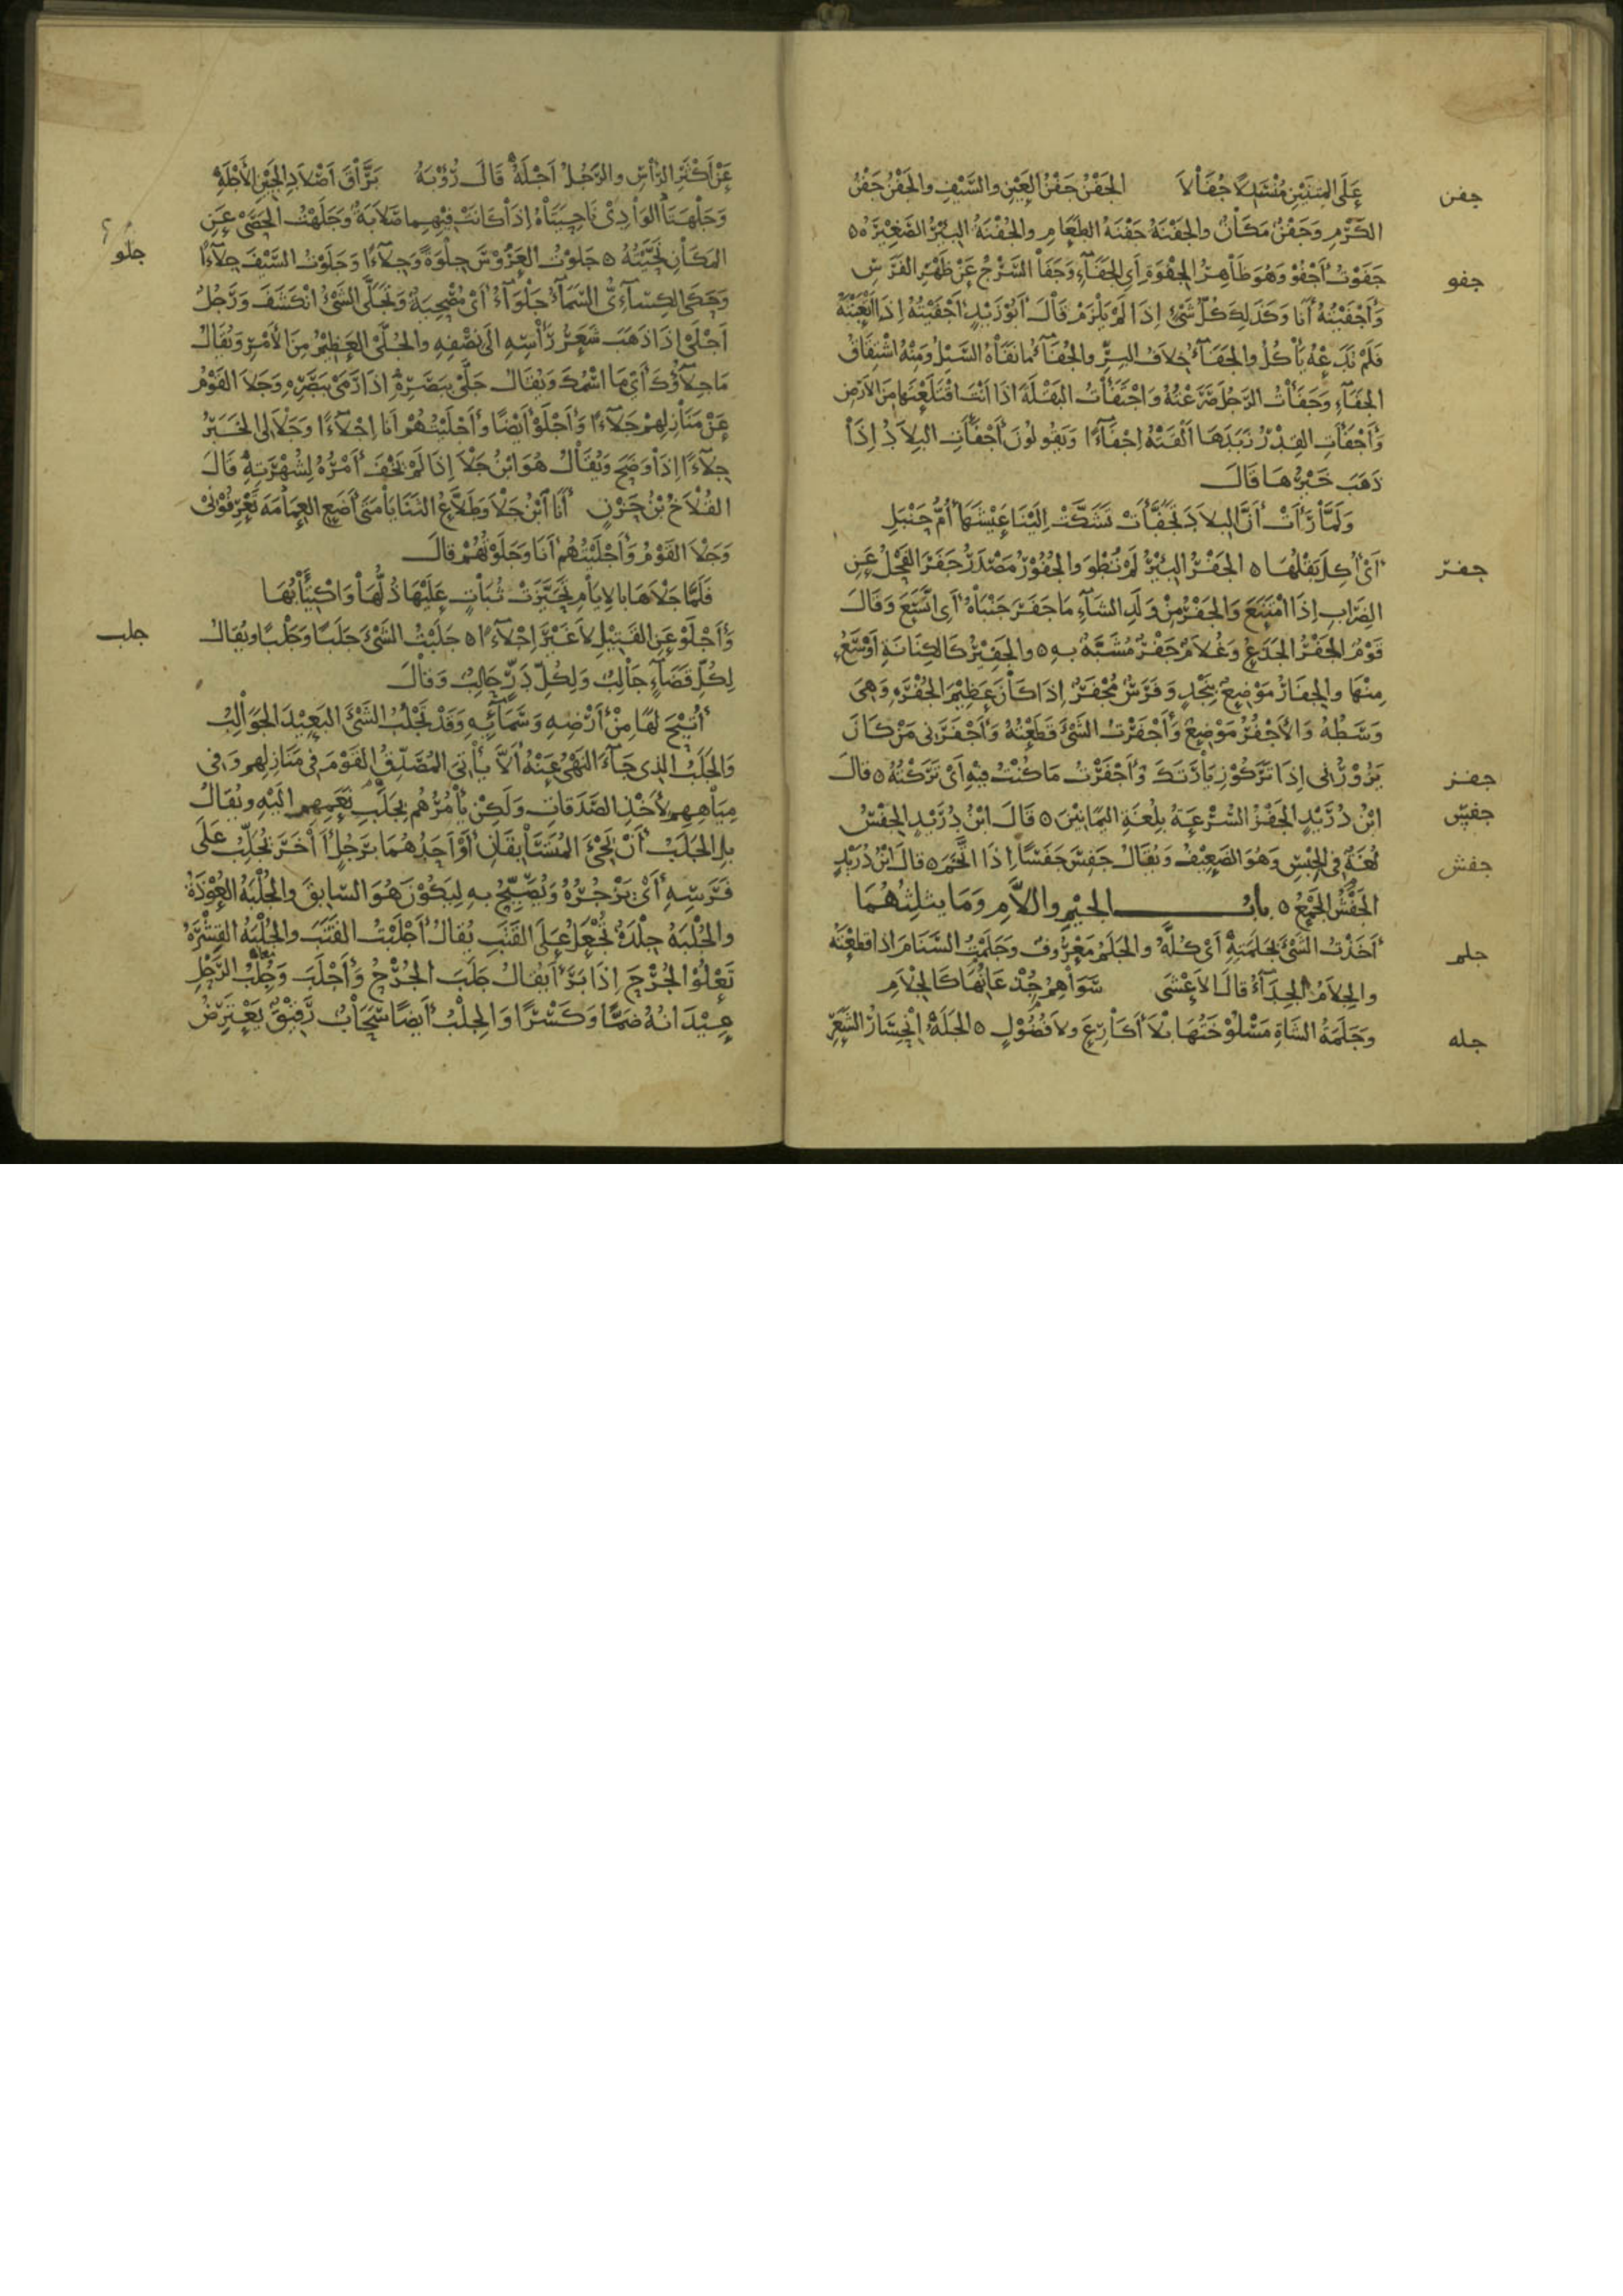 عَلَى المَتْنَيْنِ مُنْسَدِلًا جُفَالَا الجَفْنُ جَفْنُ العَيْنِ والسَّيْفِ والجَفْنُ جَفْنُ
جفن
الكَرْمِ وَجَفْنُ مَكَانٌ والجَفْنَةُ جَفْنَةُ الطَّعَامِ والجَفْنَةُ البِئْرُ الصَّغِيْرَةُ ٥
جَفَوْتُ أَجْفُوْ وَهُوَ ظَاهِرُ الجِفْوَةِ أَيِ الجَفَآءِ وَجَفَا السَّرْجُ عَنْ ظَهْرِ الفَرَسِ
جفو
وَأَجْفَيْتُهُ أَنَا وَكَذَلِكَ كُلُّ شَيْءٍ إِذَا لَمْ يَلْزَمْ قَالَ أَبُوْ زَيْدٍ أَجْفَيْتُهُ إِذَا أَتْعَبْتَهُ
فَلَمْ تَدَعْهُ يَأْكُلُ والجَفَآءُ خِلَافُ البِرِّ والجُفَآءُ مَا نَفَاهُ السَّيْلُ وَمِنْهُ اشْتِقَاقُ
الجَفَآءِ وَجَفَأْتُ الرَّجُلَ صَرَعْتُهُ وَاجْتَفَأْتُ البَقْلَةَ اذَا أَنْتَ اقْتَلَعْتَهَا مِنَ الأَرْضِ
وَأَجْفَأَتِ القِدْرُ زَبَدَهَا أَلْقَتْهُ إِجْفَآءًا وَيَقُولُونَ أَجْفَأَتِ البِلَادُ إِذَا
ذَهَبَ خَيْرُهَا قَالَ
وَلَمَّا رَأَتْ أَنَّ البِلَادَ تَجَفَّأَتْ تَشَكَّتْ إِلَيْنَا عَيْشَهَا أُمُّ حَنْبَلِ
أَيْ أُكِلَ بَقْلُهَا ٥ الجَفْرُ البِئْرُ لَمْ تُطْوَ والجُفُوْرُ مَصْدَرُ جَفَرَ الفَحْلُ عَنِ
جفر
الضِّرَابِ إِذَا امْتَنَعَ وَالجَفْرُ مِنْ وَلَدِ الشَّآءِ مَا جَفَرَ جَنْبَاهُ أَيِ اتَّسَعَ وَقَالَ
قَوْمٌ الجَفْرُ الجَذَعُ وَغُلَامٌ جَفْرٌ مُشَبَّهٌ بِهِ ٥ والجَفِيْرُ كَالكِنَانَةِ أَوْسَعُ
مِنْهَا والجِفَارُ مَوْضِعٌ بِنَجْدٍ وَفَرَسٌ مُجْفَرٌ إِذَا كَانَ عَظِيْمَ الجُفْرَةِ وَهِيَ
وَسَطُهُ وَالأَجْفُرُ مَوْضِعٌ وَأَجْفَرْتُ الشَّيْءَ قَطَعْتُهُ وَأَجْفَرَنِي مَنْ كَانَ
يَزُوْرُنِي إِذَا تَرَكُوْ زِيَارَتَكَ وَأَجْفَرْتُ مَا كُنْتُ فِيْهِ أَيْ تَرَكْتُهُ ٥ قَالَ
جفز
ابْنُ دُرَيْدٍ الجَفْزُ السُّرْعَةُ بِلُغَةِ اليَمَانِيْنَ ٥ قَالَ ابْنُ دُرَيْدٍ الجِفْسُ
جفس
لُغَةٌ فِي الجِبْسِ وَهُوَ الضَّعِيْفُ وَيُقَالُ جَفِسَ جَفَسًا إِذَا اتَّخَمَ ٥ قَالَ ابْنُ دُرَيْدٍ
جفش
الجَفْشُ الجَمْعُ ٥ بابُ الجيْمِ واللَّامِ وَمَا يثلثُهُمَا
أَخَذْتُ الشَّيْءَ بِجَلَمَتِهِ أَيْ كُلَّهُ والجَلَمُ مَعْرُوفٌ وَجَلَمْتُ السَّنَامَ اذا قطعْتَهُ
جلم
والجِلَامُ الجِدَآءُ قَالَ الأَعْشَى سَوَاهِمُ جُذْعَانُهَا كَالجِلَامِ
وَجَلَمَةُ الشَّاةِ مَسْلُوْخَتُهَا بِلَا أَكَارِعَ ولا فُضُوْلٍ ٥ الجَلَهُ انْحِسَارُ الشَّعَرِ
جله
عَنْ أَكْثَرِ الرَّأْسِ والرَّجُلُ أَجْلَهُ قَالَ رُؤْبَةُ بَرَّاقَ أَصْلَادِ الجَبِيْنِ الأَجْلَهِ
وَجَلْهَتَا الوَادِيْ نَاحِيَتَاهُ إِذَا كَانَتْ فِيْهِمَا صَلَابَةٌ وَجَلَهْتُ الحَصَى عَنِ
المَكَانِ نَحَّيْتُهُ ٥ جَلَوْتُ العَرُوْسَ جِلْوَةً وَجِلَآءًا وَجَلَوْتُ السَّيْفَ جِلَآءًا
جلو
وَحَكَى الكِسَآءِيُّ السَّمَآءُ جَلْوَآءُ أَيْ مُصْحِيَةٌ وَتَجَلَّى الشَّيْءُ انْكَشَفَ وَرَجُلٌ
أَجْلَى إِذَا ذَهَبَ شَعَرُ رَأْسِهِ الَى نِصْفِهِ والجُلَّى العَظِيْمُ مِنَ الأَمْرِ وَيُقَالُ
مَا جِلَاؤُكَ أَيْ مَا اسْمُكَ وَيُقَالُ جَلَّى بِبَصَرِهِ إِذَا رَمَى بِبَصَرِهِ وَجَلَا القَوْمُ
عَنْ مَنَازِلِهِمْ جَلَآءًا وَأَجْلَوْ أَيْضًا وَأَجْلَيْتُهُمْ أَنَا إِجْلَآءًا وَجَلَا لِي الخَبَرُ
جِلَآءًا إِذَا وَضَحَ وَيُقَالُ هُوَ ابْنُ جَلَا إِذَا لَمْ يَخْفَ أَمْرُهُ لِشُهْرَتِهِ قَالَ
القُلَاخُ بْنُ حَزْنٍ أَنَا ابْنُ جَلَا وَطَلَّاعُ الثَّنَايَا مَتَى أَضَعِ العِمَامَةَ تَعْرِفُوْنِيْ
وَجَلَا القَوْمُ وَأَجْلَيْتُهُمْ أَنَا وَجَلَوْتُهُمْ قَالَ
فَلَمَّا جَلَاهَا بِالإِيَامِ تَحَيَّزَتْ ثُبَاتٍ عَلَيْهَا ذُلُّهَا وَاكْتِيَابُهَا
وَأَجْلَوْ عَنِ القَتِيْلِ لَا غَيْرَ إِجْلَآءًا ٥ جَلَبْتُ الشَّيْءَ جَلَبًا وَجَلْبًا ويُقَالُ
جلب
لِكُلِّ قَضَآءٍ جَالِبٌ وَلِكُلِّ دَرٍّ حَالِبٌ وَقَالَ
أُتِيْحَ لَهَا مِنْ أَرْضِهِ وَسَمَآئِهِ وَقَدْ تَجْلُبُ الشَّيْءَ البَعِيْدَ الجَوَالِبُ
وَالجَلَبُ الذي جَآءَ النَهْيُ عَنْهُ أَلَّا يَأْتِيَ المُصَدِّقُ القَوْمَ في مَنَازِلِهِم وَفي
مِيَاهِهِم لِأَخْذِ الصَّدَقَاتِ وَلَكِنْ يَأْمُرُهُم بِجَلَبِ نَعَمِهِم الَيْهِ ويُقَالُ
بلِ الجَلَبُ أَنْ يَجِيءَ المُتَسَابِقَانِ أَوْ أَحَدُهُمَا بِرَجُلٍ أَخَرَ يُجَلِّبُ عَلَى
فَرَسِهِ أَيْ يَزْجُرُهُ وَيُصَيِّحُ بِهِ لِيَكُوْنَ هُوَ السَّابِقَ والجُلْبَةُ العُوْذَةُ
والجُلْبَةُ جِلْدَةٌ تُجْعَلُ عَلَى القَتَبِ يُقَالُ أَجْلَبْتُ القَتَبَ والجُلْبَةُ القِشْرَةُ
تَعْلُوْ الجُرْحَ إِذَا بَرَأَ يُقَالُ جَلَبَ الجُرْحُ وَأَجْلَبَ وَجُلْبُ الرَّحْلِ
عِيْدَانُهُ ضَمًّا وَكَسْرًا وَالجِلْبُ أَيْضًا سَحَابٌ رَقِيْقٌ يَعْتَرِضُ